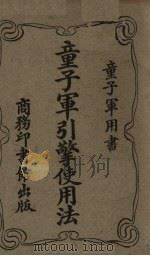 童子軍用書
童子軍引擎使用法
商務印書館出版